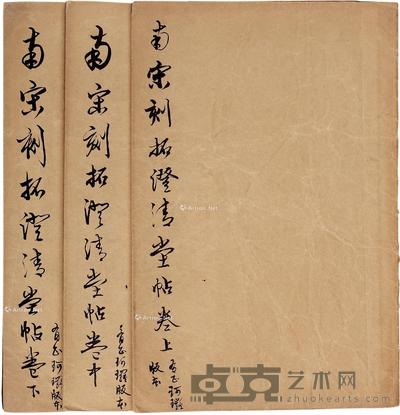 南宋刻拓澄清堂帖卷上
有正珂羅版本
南宋刻拓澄清堂帖卷中
有正珂羅版本
南宋刻拓澄清堂帖卷下
有正珂羅版本
卓克艺术网
www.zhuokearts.com